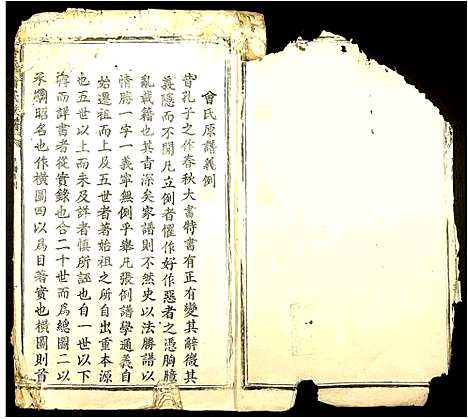 曾氏原譜義例
昔孔子之作春秋大書特書有正有變其辭微其
義隱而不開凡立例者懼作好作惡者之憑胸臆
亂載籍也其旨深矣家譜則不然史以法勝譜以
情勝一字一義寧無例乎舉凡張例譜學通義自
始遷祖而上及五世者著始祖之所自出重本源
也五世以上而未及詳者慎所誣也自一世以下
淂而詳書者從實錄也合二十世而為總圖二以
承綱昭名也作橫圖四以為目著實也橫圖則首